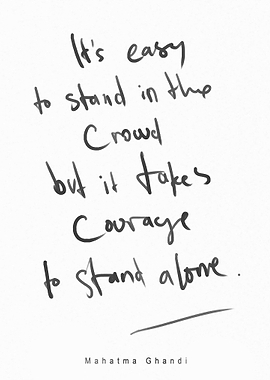 It's easy
to stand in the
Crowd
but it takes
Courage
to stand alone.
Mahatma Ghandi